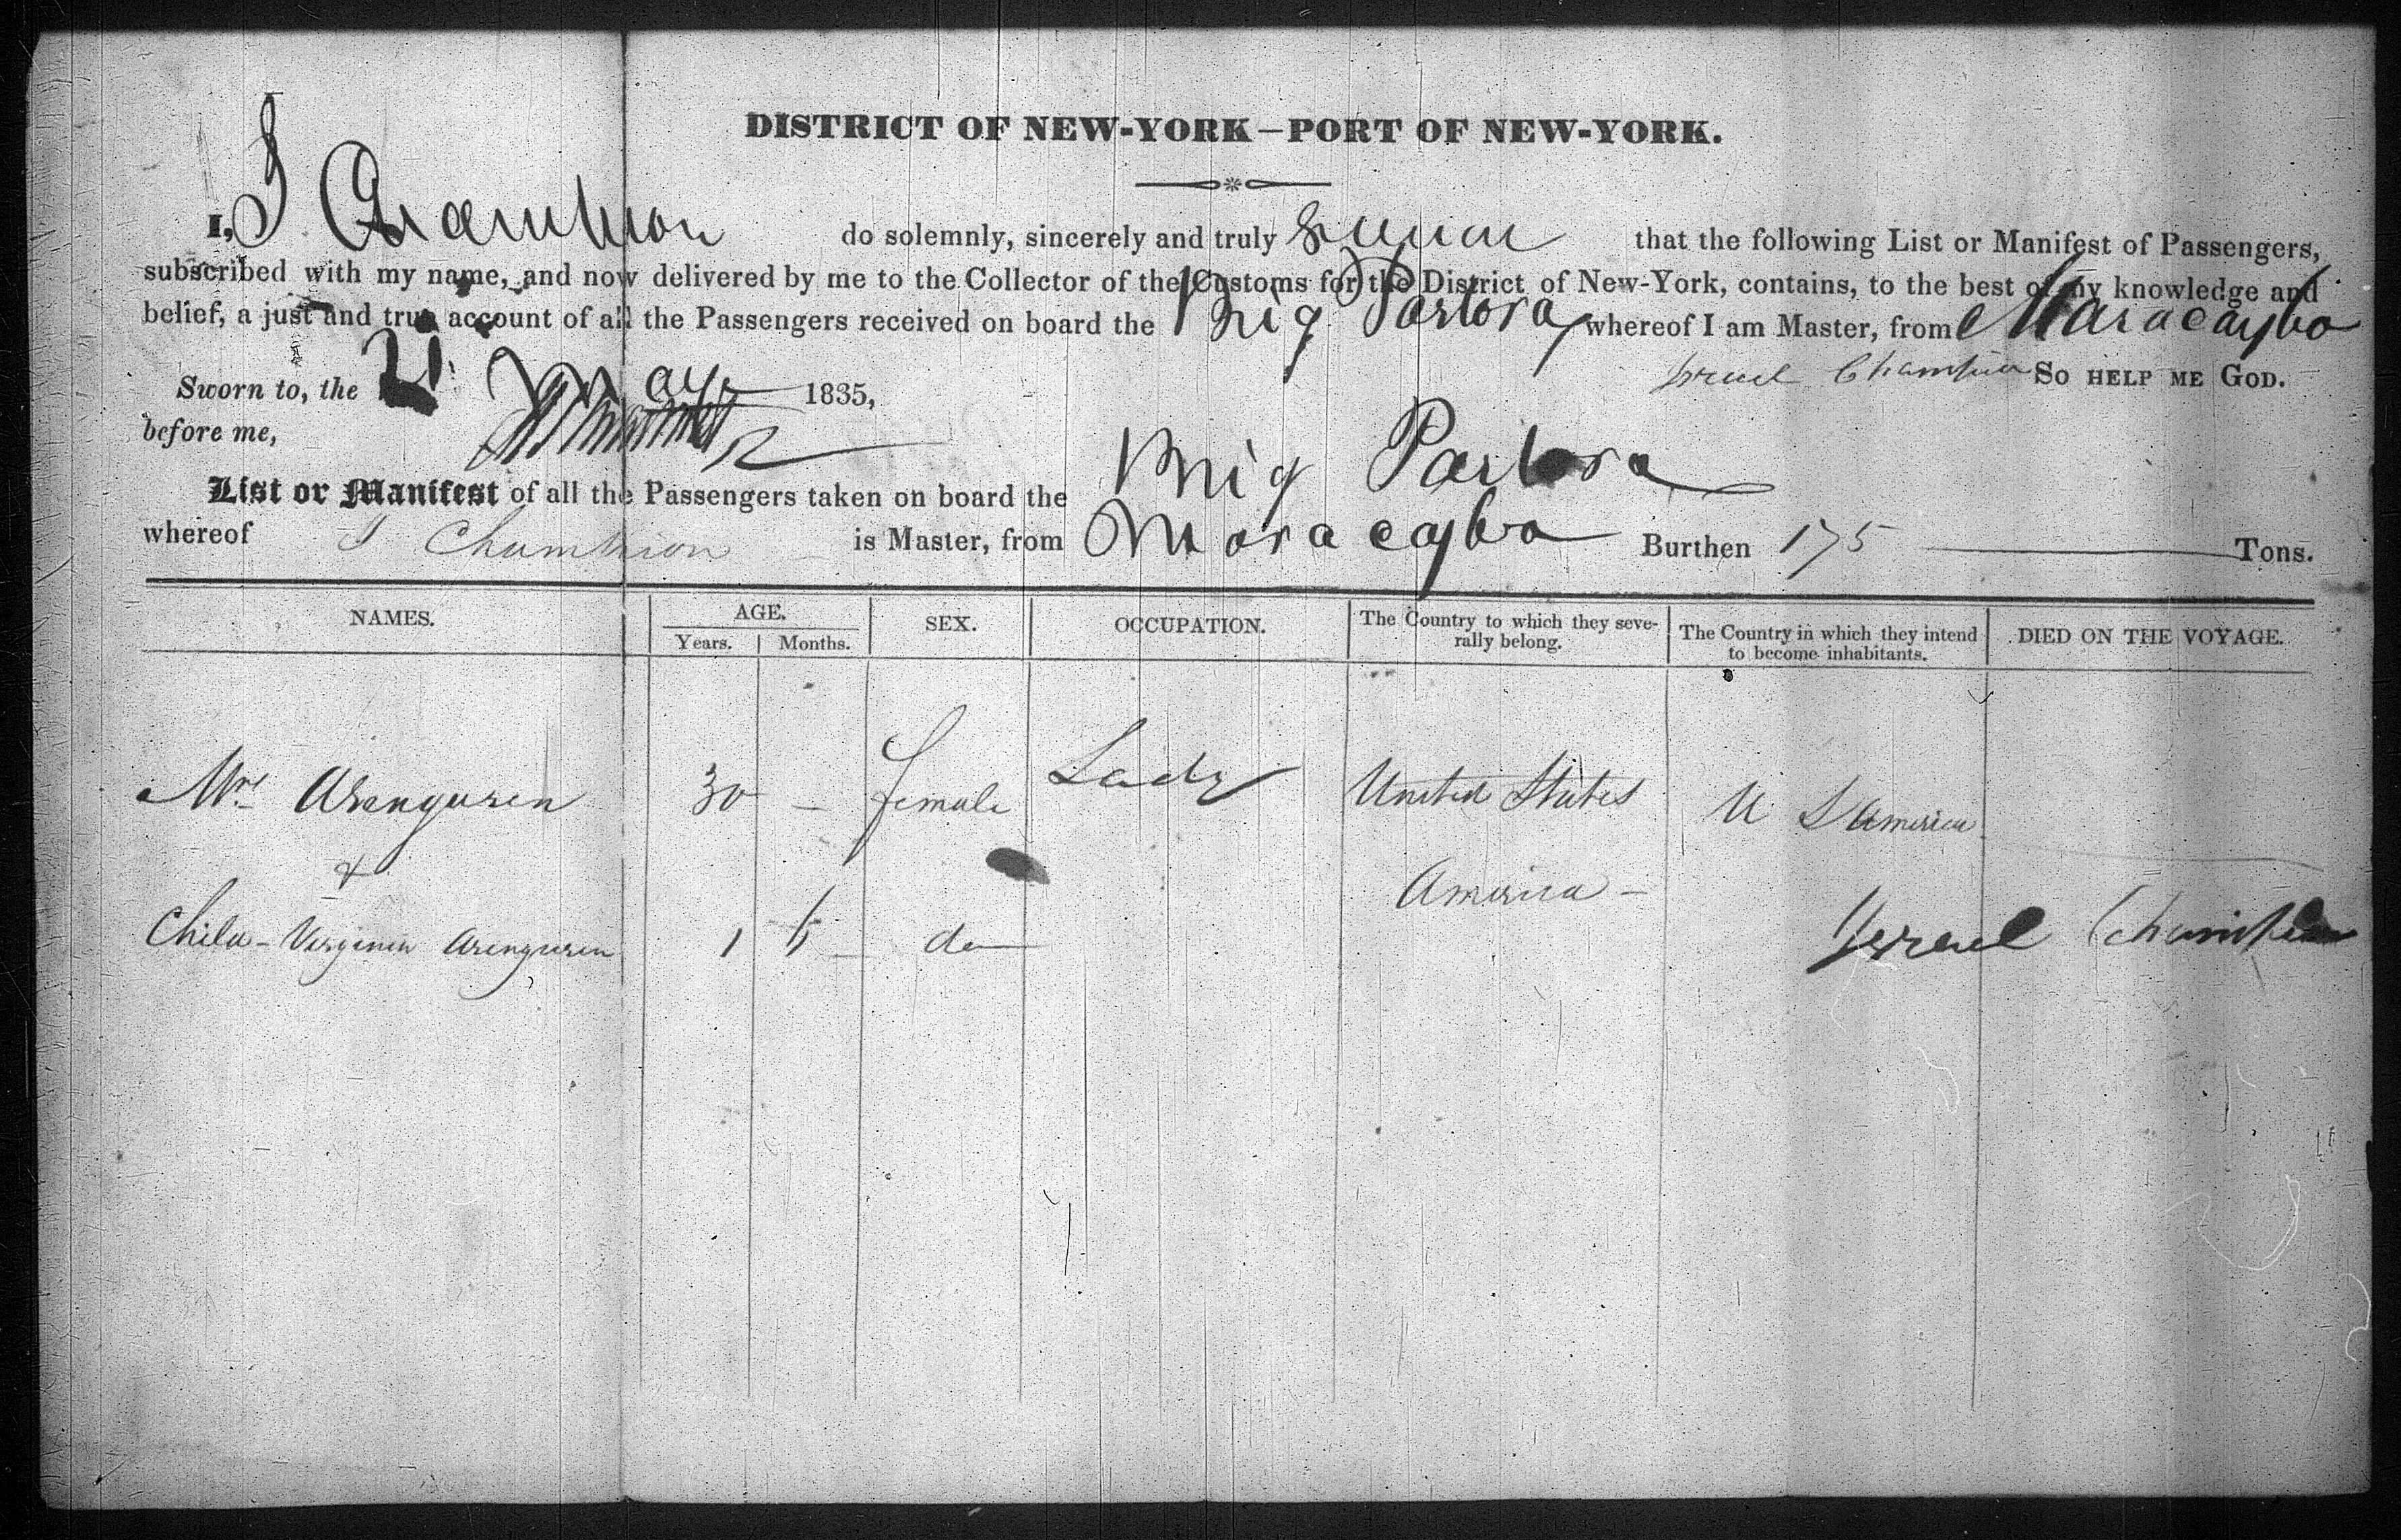 DISTRICT OF NEW-YORK—PORT OF NEW-YORK.
I, I Champion do solemnly, sincerely and truly swear that the following List or Manifest of Passengers,
subscribed with my name, and now delivered by me to the Collector of the Customs for the District of New-York, contains, to the best of my knowledge and
belief, a just and true account of all the Passengers received on board the Brig Pastora whereof I am Master, from Maracaybo
Israel Champion So HELP ME GOD.
Sworn to, the 21 May 1835,
before me,
List or Manifest of all the Passengers taken on board the Brig Pastora
whereof I Champion is Master, from Maracaybo Burthen 175 Tons.
NAMES. AGE. SEX. OCCUPATION. The Country to which they severally belong. The Country in which they intend to become inhabitants. DIED ON THE VOYAGE.
Years. Months.
Mrs Arenguren 30 — female Lady United States U S America
& America —
Child - Virginia Arenguren 1 6 do
Israel Champion